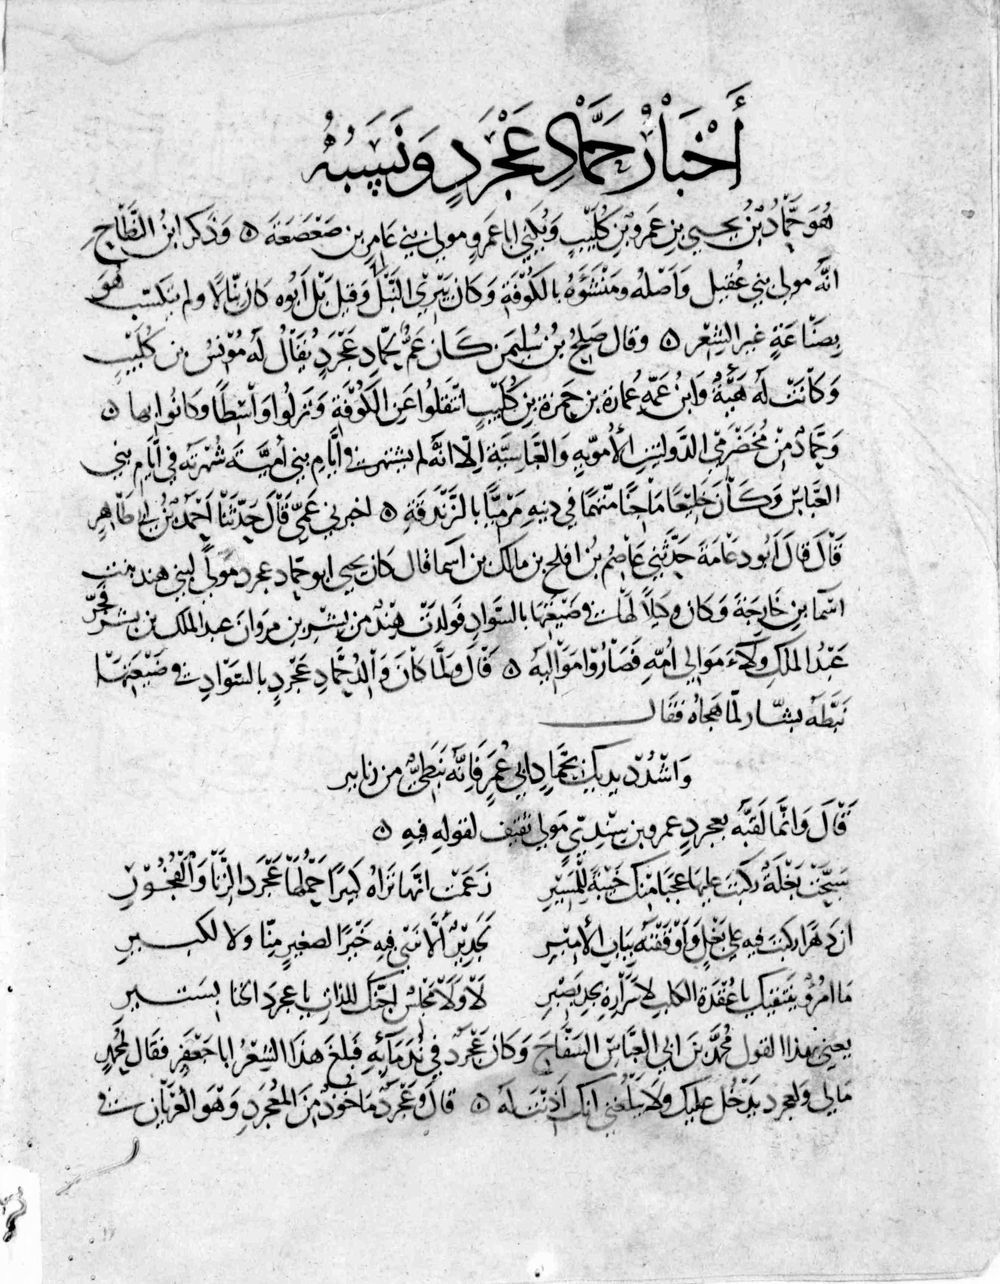 أَخْبَارُ حَمَّادِ عَجْرَدٍ وَنَسَبُهُ
هُوَ حَمَّادُ بْنُ يحيى بنِ عَمرو بْنِ كُلَيْبٍ وَيُكَنَّى ابا عَمرٍو مولى بني عَامِرِ بنِ صَعْصَعَةَ ٥ وَذَكَرَ ابنُ النَّطَّاحِ
انَّهُ مولى بني عُقيل وَاَصْلُهُ ومَنْشَؤُهُ بالكُوْفَةِ وَكَانَ يَبْرِي النَّبْلَ وَقيل بَلْ اَبُوه كان نبَّالًا ولم يتكسّب هُوَ
بِصَنَاعَةٍ غير الشِعْر ٥ وقال صَالِحُ بْنُ سُليمَن كَانَ عَمٌّ لِحمادِ عَجْرَدٍ يُقَالُ لَهُ مُؤْنِسُ بن كُلَيْبٍ
وَكَانَتْ لَهُ هَيْبَةٌ وَابنُ عَمِّهِ عُمَارة بن حَمزة بن كُلَيْبٍ انْتَقَلُوا عَنِ الكُوفَةِ وَنَزلُوا وَاسْطاً وكَانُوا بها ٥
وَحَمَّادٌ مِنْ مُخَضْرَمِي الدَّولتين الأُمَويّةِ وَالعَبَّاسِيَّة إلّا انَّهُ لم يشتهر في ايَّام بني أُمَيَّةَ شُهْرَته في ايّام بني
العَبَّاسِ وَكَانَ خَلِيْعاً مَاجِناً متّهماً في دِينِهِ مَرْمِيّاً بالزَّنْدَقَةِ ٥ اخبرني عَمِّي قَالَ حَدَّثَنَا اَحْمَدُ بْنُ أبي طَاهِرٍ
قَالَ قالَ اَبُو دعَامَةَ حَدَّثَني عَاصِمُ بنُ افلح بن مالك بن اَسما قال كان يحيى ابو حَمّاد عجرد مولًى لبني هند بنت
اسْمآ بنِ خَارِجَةَ وَكان وكيلاً لها في ضَيْعَتِهَا بالسَّوادِ فولدت هِنْدُ من بِشْر بن مروانَ عبد الملك بن بشر فَجَرَّ
عَبْدُ الملكِ وَلَآءَ مَوالي اُمّهِ فَصَارُوا مَوَالِيَهُ ٥ قَالَ وَلَمَّا كَانَ وَالِدُ حَمَّادِ عَجْرَدٍ بالسَّوَادِ في ضَيْعَتِهَا
نَبَّطَهُ بشّار لمّا هَجَاهُ فقَال
وَاشْدُدْ يديك بِحَمَّادٍ أبي عُمَرٍ فَإنَّهُ نَبَطِيٌّ من زنابير
قَالَ وَانَّمَا لَقَّبَهُ بعجردٍ عمرو بن سِنْدِيّ مَولى ثقيف لقوله فيه ٥
سَبَحَتْ بَغْلَةٌ رَكبتَ عليها عَجَباً منْك خَيْبَةً للمَسِيْرِ زَعَمَتْ انّها تَرَاهُ كَبِيرًا حَمْلُهَا عَجْرَدَ الزِّنَا وَالْفُجُوْرِ
ان دَهْرًا ركبتَ فيهِ على بَغْلٍ وَأَوْقَفْتَهُ بِبَابِ الأَمير لَجَدِيرٌ أَلَّا نَرَى فيه خَيْرًا لصغيرٍ منّا ولا لكبير
مَا امرُؤٌ يَنتقيك يا عُقْدَةَ الكلبِ لِأَسْرَارِهِ بجِدِّ بَصِيْرِ لَا وَلَا مَجْلِسٌ اجَنَّك للذات يا عجرَدَ الخنا بسَتِير
يعني بهذا القول مُحَمَّدَ بنَ ابي العَبَّاس السَفَّاح وَكَان عَجْرَدٌ في نُدَمَآئِهِ فَبلغَ هذَا الشِعْرُ ابا جَعْفَرٍ فَقَال لمُحَمَّدٍ
مَا لي وَلِعَجردٍ يَدْخُل عَلَيكَ ولا يَبْلغُني انَّك اَذِنْتَ لَهُ ٥ قال وَعَجْرَدٌ مَأخوذٌ مِنَ المُعَجْرَدِ وَهُوَ العُرْيَان في